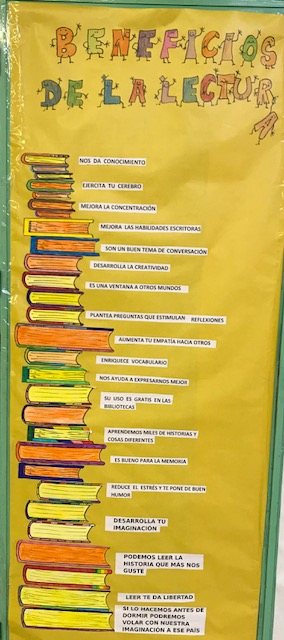 BENEFICIOS
DE LA LECTUR
A
NOS DA CONOCIMIENTO
EJERCITA TU CEREBRO
MEJORA LA CONCENTRACIÓN
MEJORA LAS HABILIDADES ESCRITORAS
SON UN BUEN TEMA DE CONVERSACIÓN
DESARROLLA LA CREATIVIDAD
ES UNA VENTANA A OTROS MUNDOS
PLANTEA PREGUNTAS QUE ESTIMULAN REFLEXIONES
AUMENTA TU EMPATÍA HACIA OTROS
ENRIQUECE VOCABULARIO
NOS AYUDA A EXPRESARNOS MEJOR
SU USO ES GRATIS EN LAS
BIBLIOTECAS
APRENDEMOS MILES DE HISTORIAS Y
COSAS DIFERENTES
ES BUENO PARA LA MEMORIA
REDUCE EL ESTRÉS Y TE PONE DE BUEN
HUMOR
DESARROLLA TU
IMAGINACIÓN
PODEMOS LEER LA
HISTORIA QUE MÁS NOS
GUSTE
LEER TE DA LIBERTAD
SI LO HACEMOS ANTES DE
DORMIR PODREMOS
VOLAR CON NUESTRA
IMAGINACIÓN A ESE PAÍS